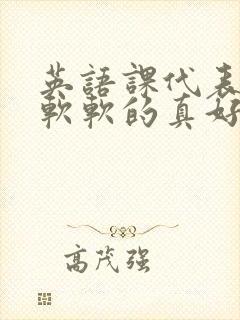 英語課代表
軟軟的真好
高茂强